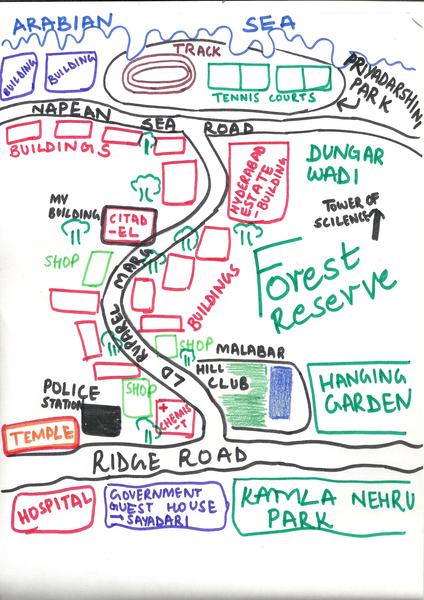 ARABIAN SEA
BUILDING
BUILDING
TRACK
TENNIS COURTS
PRIYADARSHINI
PARK
NAPEAN SEA ROAD
BUILDINGS
HYDERABAD
ESTATE
-BUILDING
DUNGAR
WADI
TOWER OF
SCILENCE
MY
BUILDING
CITAD
-EL
SHOP
LD RUPAREL MARG
BUILDINGS
Forest
Reserve
SHOP
MALABAR
HILL
CLUB
HANGING
GARDEN
POLICE
STATION
SHOP
CHEMIS
-T
TEMPLE
RIDGE ROAD
HOSPITAL
GOVERNMENT
GUEST HOUSE
SAYADARI
KAMLA NEHRU
PARK